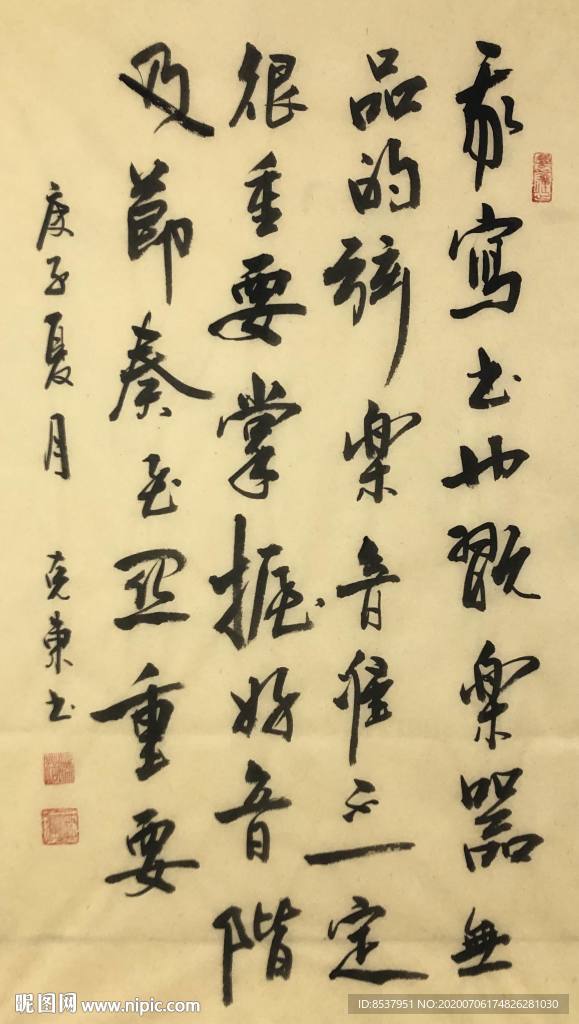 我寫书也翫樂器無
品的弦樂音准不一定
很重要掌握好音階
及節奏至関重要
庚子夏月 克東书
昵图网 www.nipic.com
ID:8537951 NO:20200706174826281030